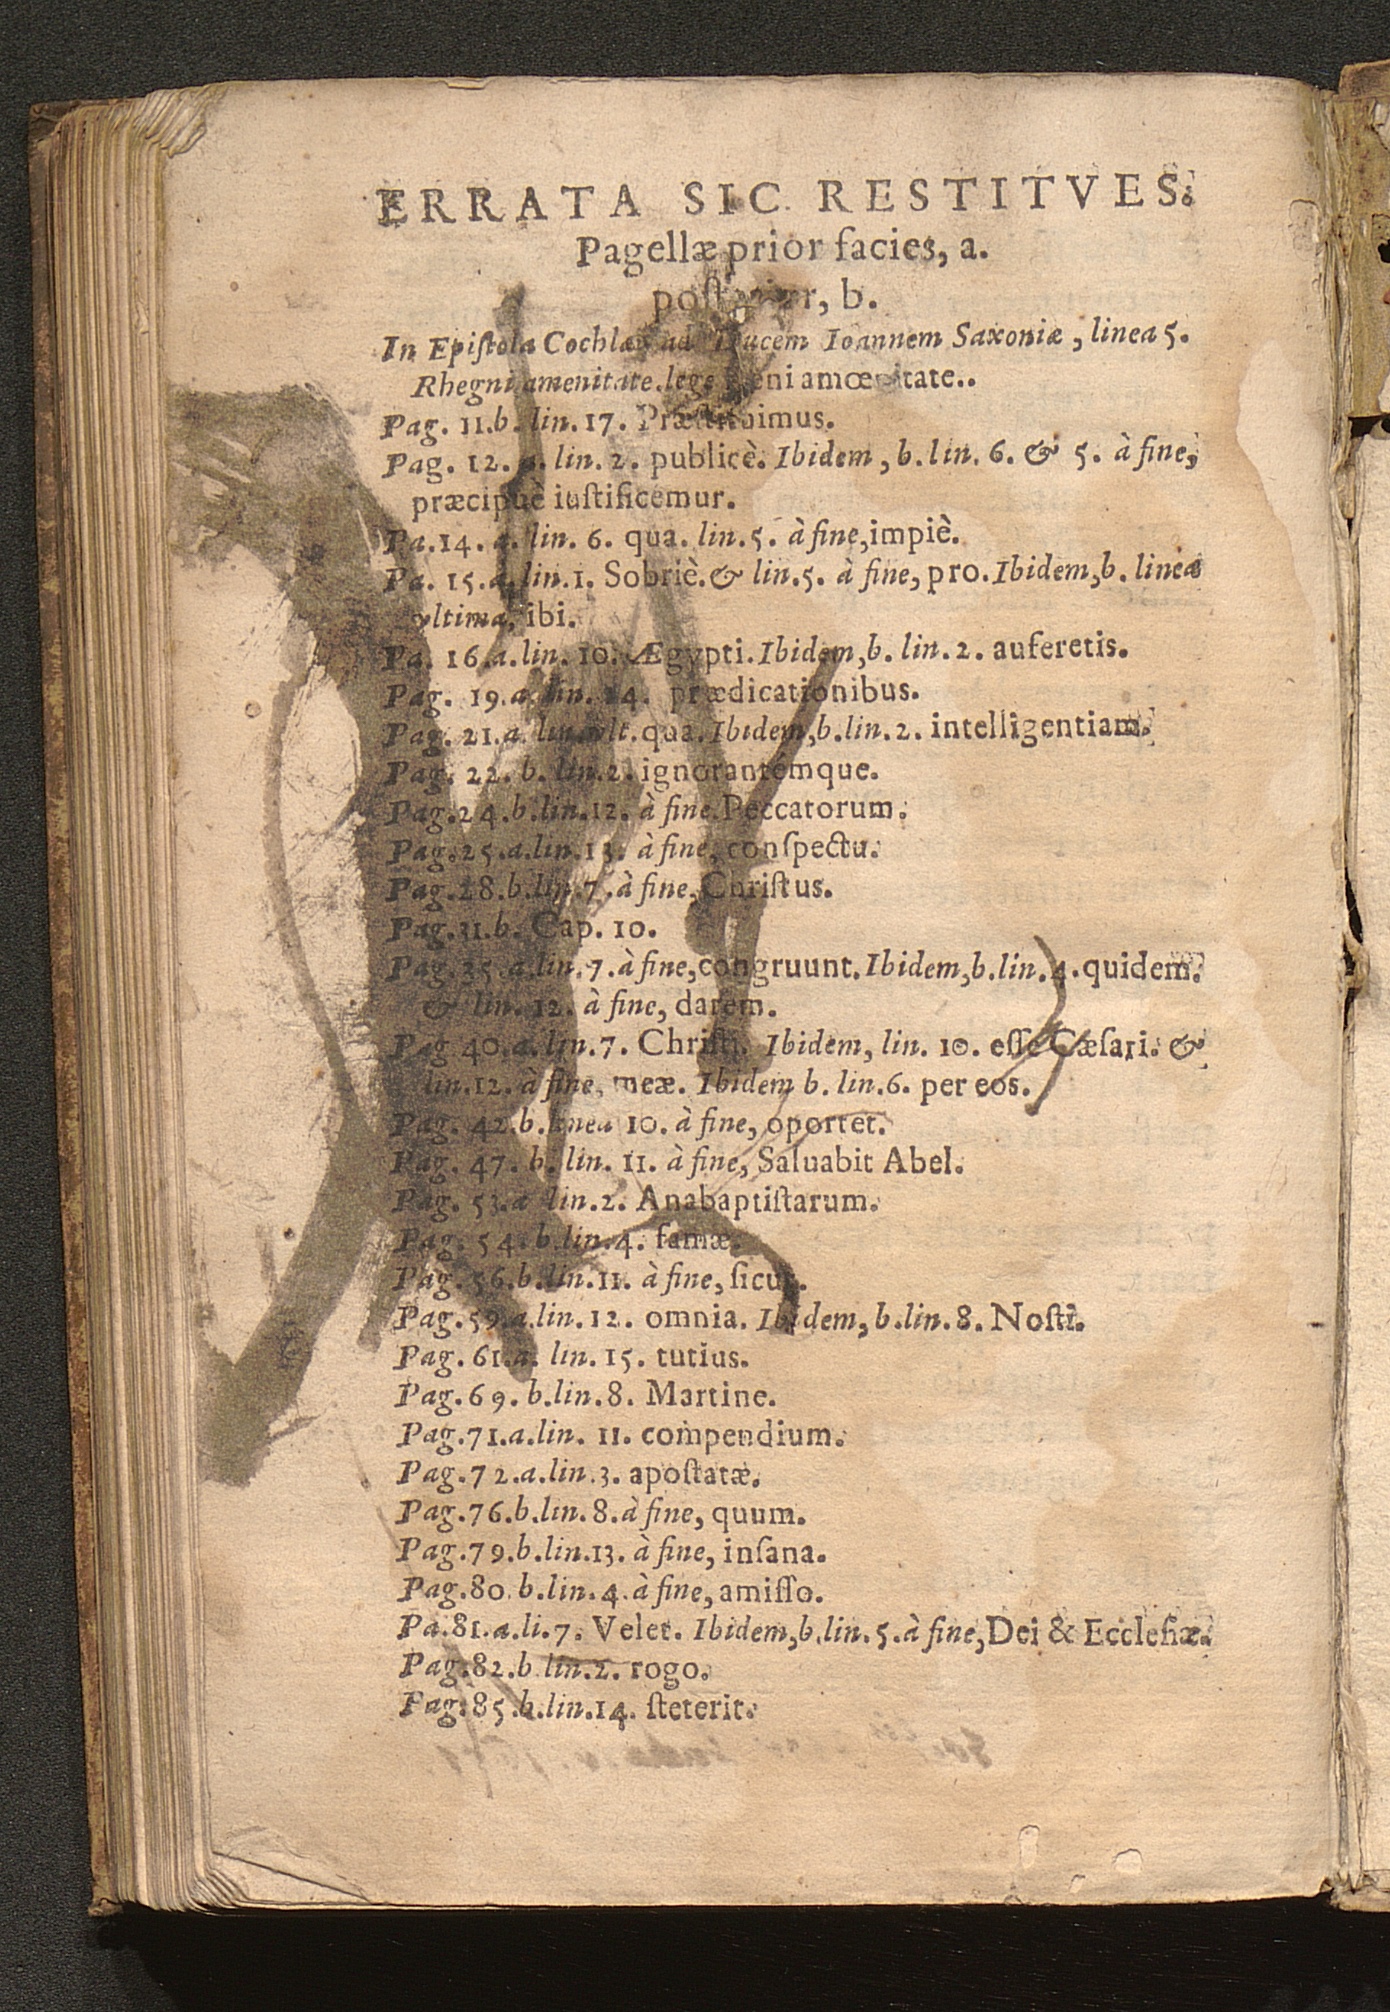 ERRATA SIC RESTITVES.
Pagellæ prior facies, a.
posterior, b.
In Epistola Cochlæi ad Ducem Ioannem Saxoniæ, linea 5.
Rhegni amenitate. lege Rheni amœnitate..
Pag. 11.b. lin. 17. Præstituimus.
Pag. 12. a. lin. 2. publicè. Ibidem, b. lin. 6. & 5. à fine,
præcipuè iustificemur.
Pa.14. a. lin. 6. qua. lin. 5. à fine, impiè.
Pa. 15.a. lin.1. Sobriè. & lin.5. à fine, pro. Ibidem, b. linea
vltima, ibi.
Pa. 16.a. lin. 10. Ægypti. Ibidem, b. lin. 2. auferetis.
Pag. 19.a. lin. 14. prædicationibus.
Pag. 21.a. lin. vlt. qua. Ibidem, b. lin. 2. intelligentiam.
Pag. 22. b. lin.2. ignorantémque.
Pag.24.b.lin.12. à fine. Peccatorum.
Pag.25.a.lin.13. à fine, conspectu.
Pag.28.b.lin.7. à fine, Christus.
Pag.31.b. Cap. 10.
Pag.35.a.lin.7. à fine, congruunt. Ibidem, b. lin. 4. quidem.
& lin. 12. à fine, darem.
Pag 40.a.lin.7. Christi. Ibidem, lin. 10. esse Cæsari. &
lin.12. à fine, meæ. Ibidem b. lin.6. per eos.
Pag. 42.b.linea 10. à fine, oportet.
Pag. 47. b. lin. 11. à fine, Saluabit Abel.
Pag. 53.a lin.2. Anabaptistarum.
Pag. 54.b.lin.4. famæ.
Pag. 56.b.lin.11. à fine, sicut.
Pag.59.a.lin.12. omnia. Ibidem, b.lin.8. Nostì.
Pag.61.a. lin.15. tutius.
Pag.69.b.lin.8. Martine.
Pag.71.a.lin. 11. compendium.
Pag.72.a.lin.3. apostatæ.
Pag.76.b.lin.8. à fine, quum.
Pag.79.b.lin.13. à fine, insana.
Pag.80.b.lin.4. à fine, amisso.
Pa.81.a.li.7. Velet. Ibidem, b. lin. 5. à fine, Dei & Ecclesiæ.
Pag.82.b lin.2. rogo.
Pag.85.b.lin.14. steterit.